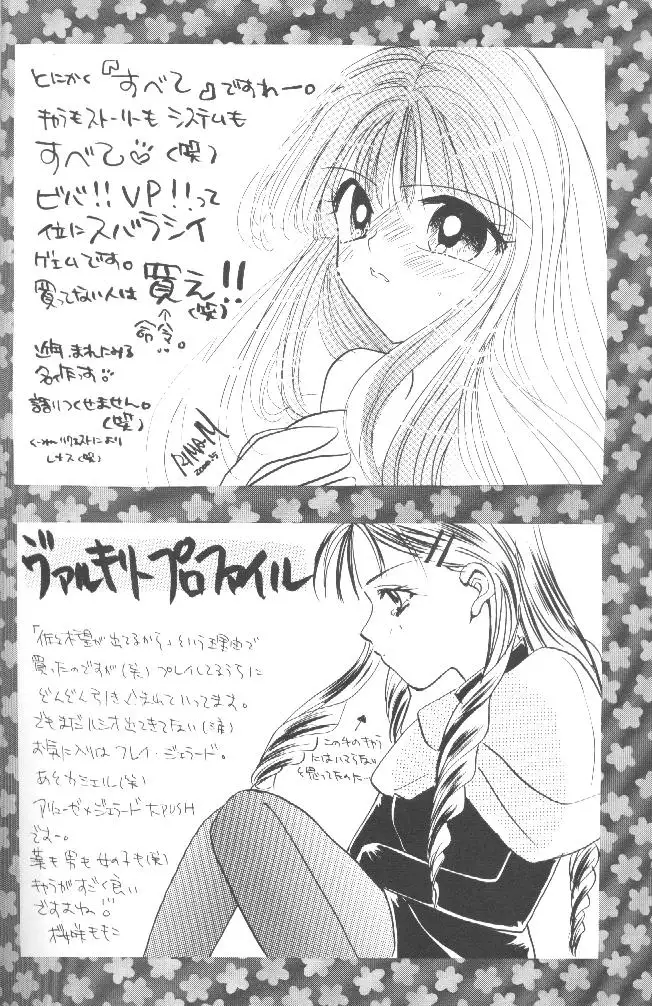 とにかく『すべて』ですわー。
キャラもストーリーも システムも
すべて♡(笑)
ビバ!!VP!!って
位にスバラシイ
ゲェムです。
買ってない人は買え!!(笑)
↑
命令
近年まれにみる
名作っす
語りつくせません。
(笑)
レナス(笑)
RINA・M
2000.5
ヴァルキリープロファイル
「佐々木望が出てるから」という理由で
買ったのですが(笑)プレイしてるうちに
どんどん引きこまれていってます。
でもまだルシオ出てきてない(涙)
お気に入りはフレイ・ジェラード。
あとカシェル(笑)
アリューゼ×ジェラード大PUSH
ですー。
も男も女の子も(笑)
キャラがすごく良い
ですよね
桜咲ももこ
この手のキャラ
には
と思ってたのに…